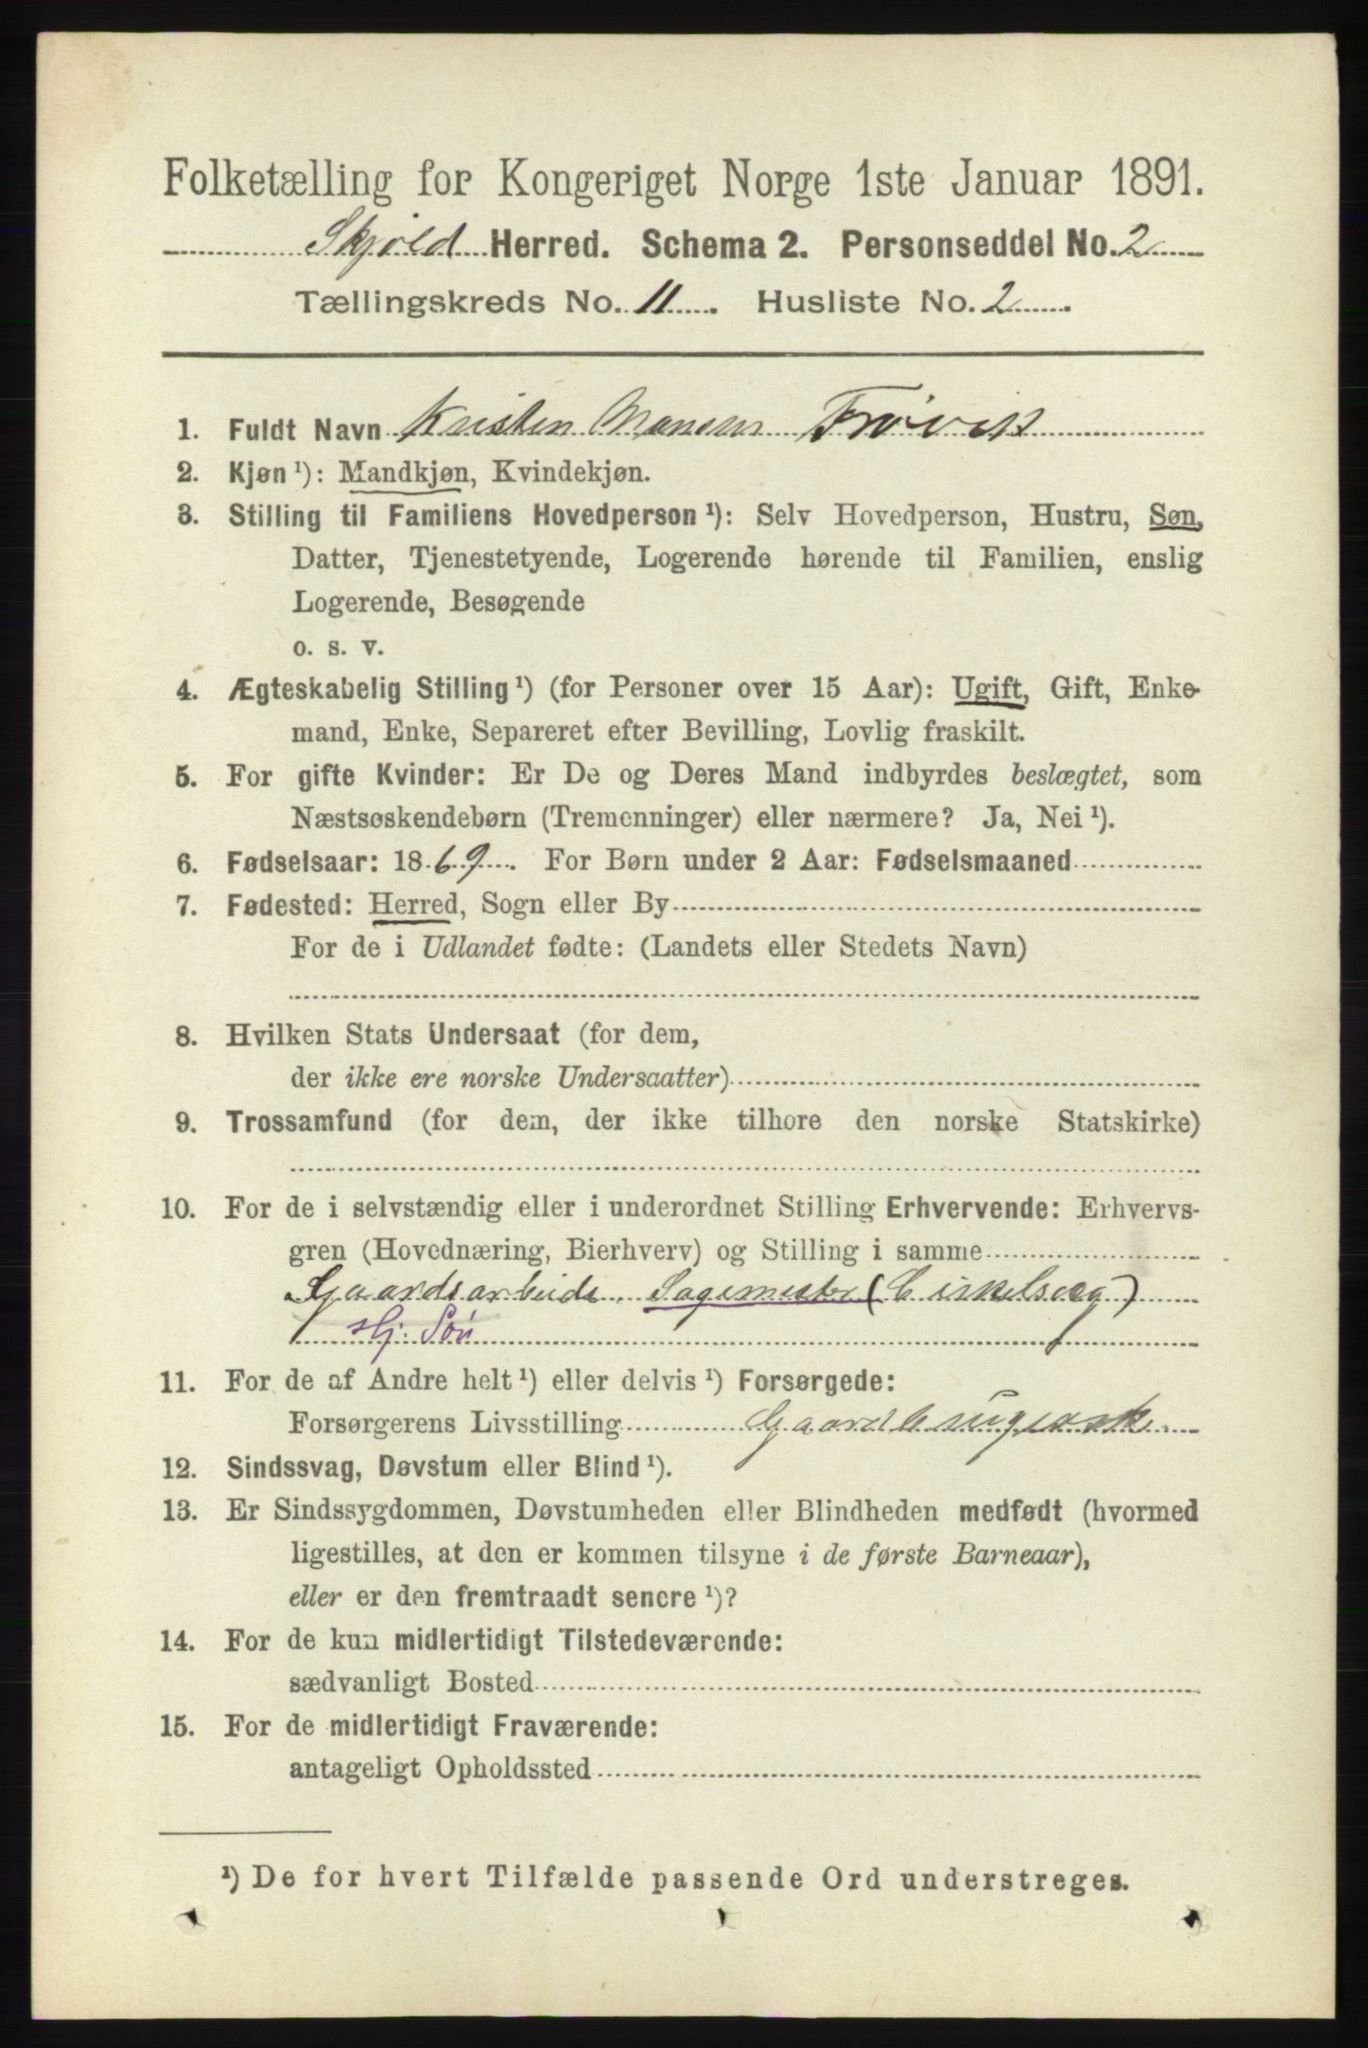 Folketælling for Kongeriget Norge 1ste Januar 1891.
Skjold Herred. Schema 2. Personseddel No. 2
Tællingskreds No. 11. Husliste No. 2.
1. Fuldt Navn Kristen Monsen Frøvik
2. Kjøn ¹): Mandkjøn, Kvindekjøn.
3. Stilling til Familiens Hovedperson ¹): Selv Hovedperson, Hustru, Søn,
Datter, Tjenestetyende, Logerende hørende til Familien, enslig
Logerende, Besøgende
o. s. v.
4. Ægteskabelig Stilling ¹) (for Personer over 15 Aar): Ugift, Gift, Enke-
mand, Enke, Separeret efter Bevilling, Lovlig fraskilt.
5. For gifte Kvinder: Er De og Deres Mand indbyrdes beslægtet, som
Næstsøskendebørn (Tremenninger) eller nærmere? Ja, Nei ¹).
6. Fødselsaar: 1869. For Børn under 2 Aar: Fødselsmaaned
7. Fødested: Herred, Sogn eller By
For de i Udlandet fødte: (Landets eller Stedets Navn)
8. Hvilken Stats Undersaat (for dem,
der ikke ere norske Undersaatter)
9. Trossamfund (for dem, der ikke tilhøre den norske Statskirke)
10. For de i selvstændig eller i underordnet Stilling Erhvervende: Erhvervs-
gren (Hovednæring, Bierhverv) og Stilling i samme
Gaardsarbeide. Sagemester (Cirkelsag)
Hj. Søn
11. For de af Andre helt ¹) eller delvis ¹) Forsørgede:
Forsørgerens Livsstilling
12. Sindssvag, Døvstum eller Blind ¹).
13. Er Sindssygdommen, Døvstumheden eller Blindheden medfødt (hvormed
ligestilles, at den er kommen tilsyne i de første Barneaar),
eller er den fremtraadt senere ¹)?
14. For de kun midlertidigt Tilstedeværende:
sædvanligt Bosted
15. For de midlertidigt Fraværende:
antageligt Opholdssted
¹) De for hvert Tilfælde passende Ord understreges.